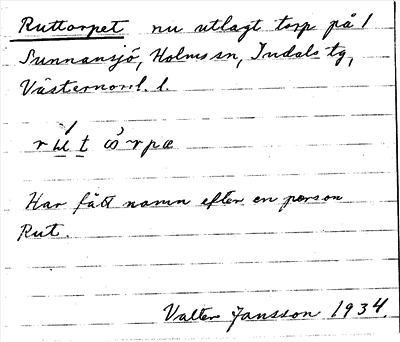 Ruttorpet nu utlagt torp på 1
Sunnansjö, Holms sn, Indals tg,
Västernorrl. l.
Har fått namn efter en person
Rut.
Valter Jansson 1934.